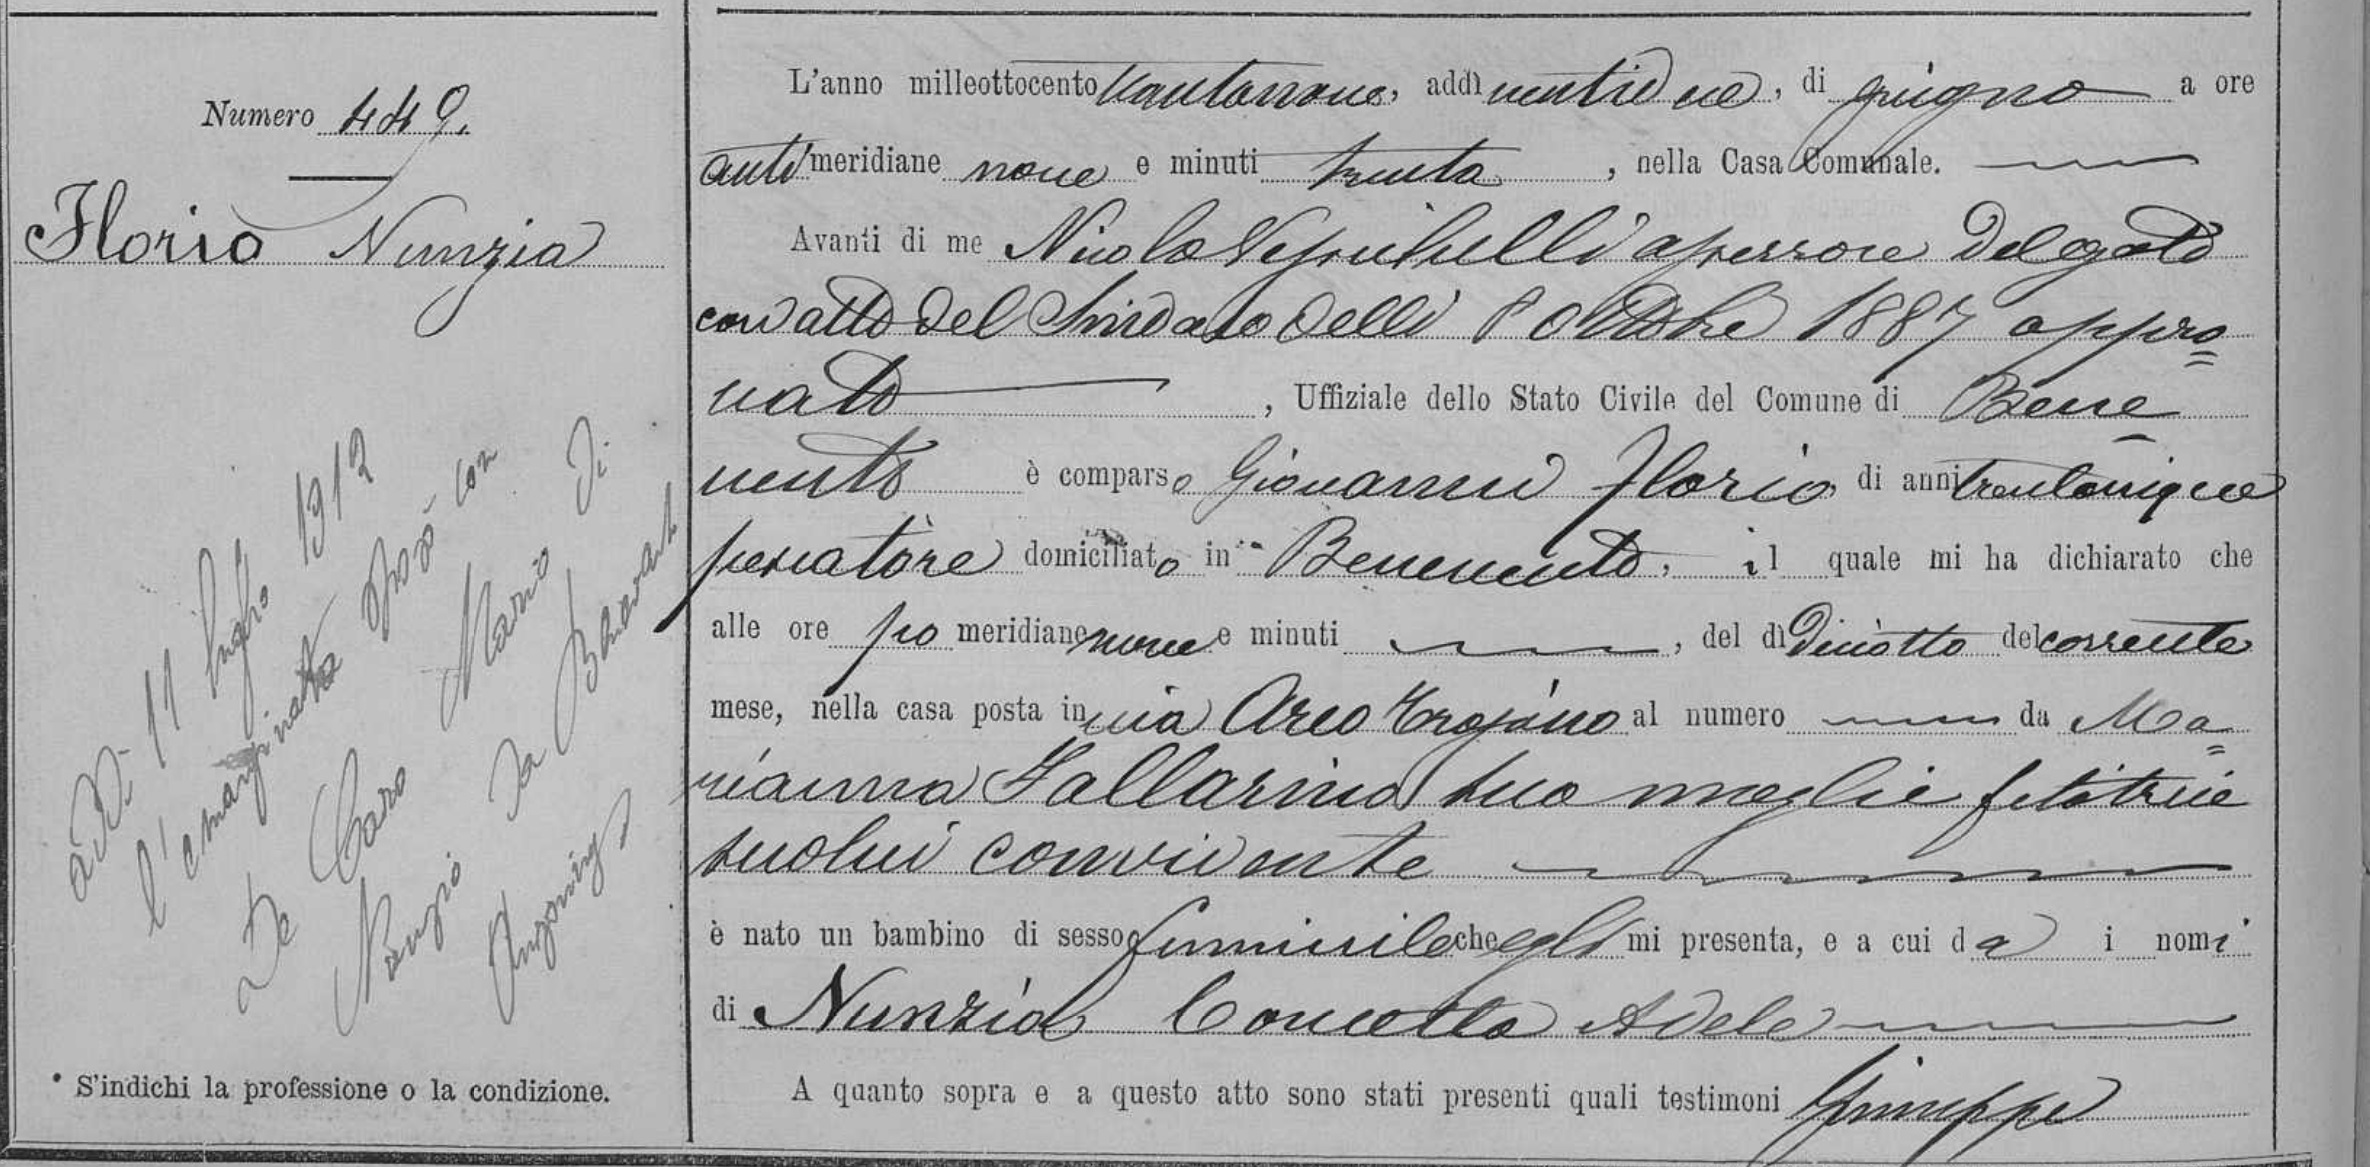 Numero 449.
Florio Nunzia
addì 11 luglio 1912
l'emarginata sposò con
De Caro Mario di
Nunzio da Benevento
* S'indichi la professione o la condizione.
L'anno milleottocentottantanove, addì ventidue, di giugno a ore
anti meridiane nove e minuti trenta, nella Casa Comunale.
Avanti di me Nicola assessore delegato
con atto del Sindaco delli 8 Ottobre 1887 appro=
vato, Uffiziale dello Stato Civile del Comune di Bene
vento è comparso Giovanni Florio, di anni trentacinque
domiciliato in Benevento, il quale mi ha dichiarato che
alle ore po meridiane nove e minuti, del dì diciotto del corrente
mese, nella casa posta in via Arco Trojano al numero da Ma=
rianna Fallarino sua moglie filatrice
seco lui convivente
è nato un bambino di sesso femminile che egli mi presenta, e a cui da i nomi
di Nunzia Concetta Adele
A quanto sopra e a questo atto sono stati presenti quali testimoni Giuseppe